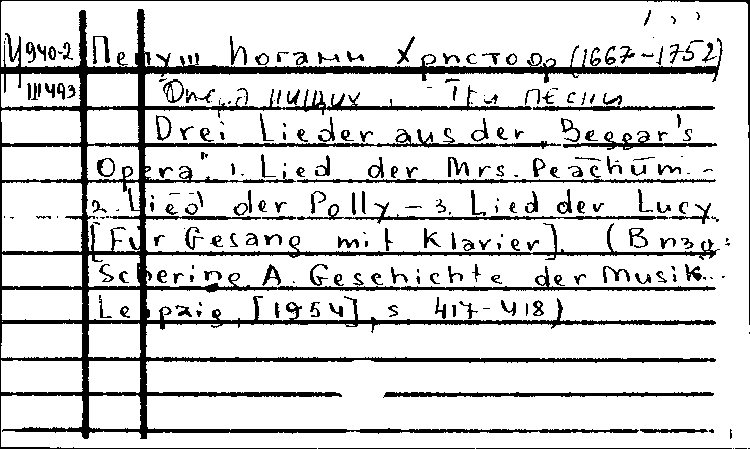 Ц940-2 Пепуш Иоганн Христоф (1667-1752)
Ш493 Опера нищих. Три песни
Drei Lieder aus der „Beggar's
Opera". 1. Lied der Mrs. Peachum. -
2. Lied der Polly. - 3. Lied der Lucy.
[Für Gesang mit Klavier]. (В изд:
Schering A. Geschichte der Musik...
Leipzig, [1954], s. 417-418)